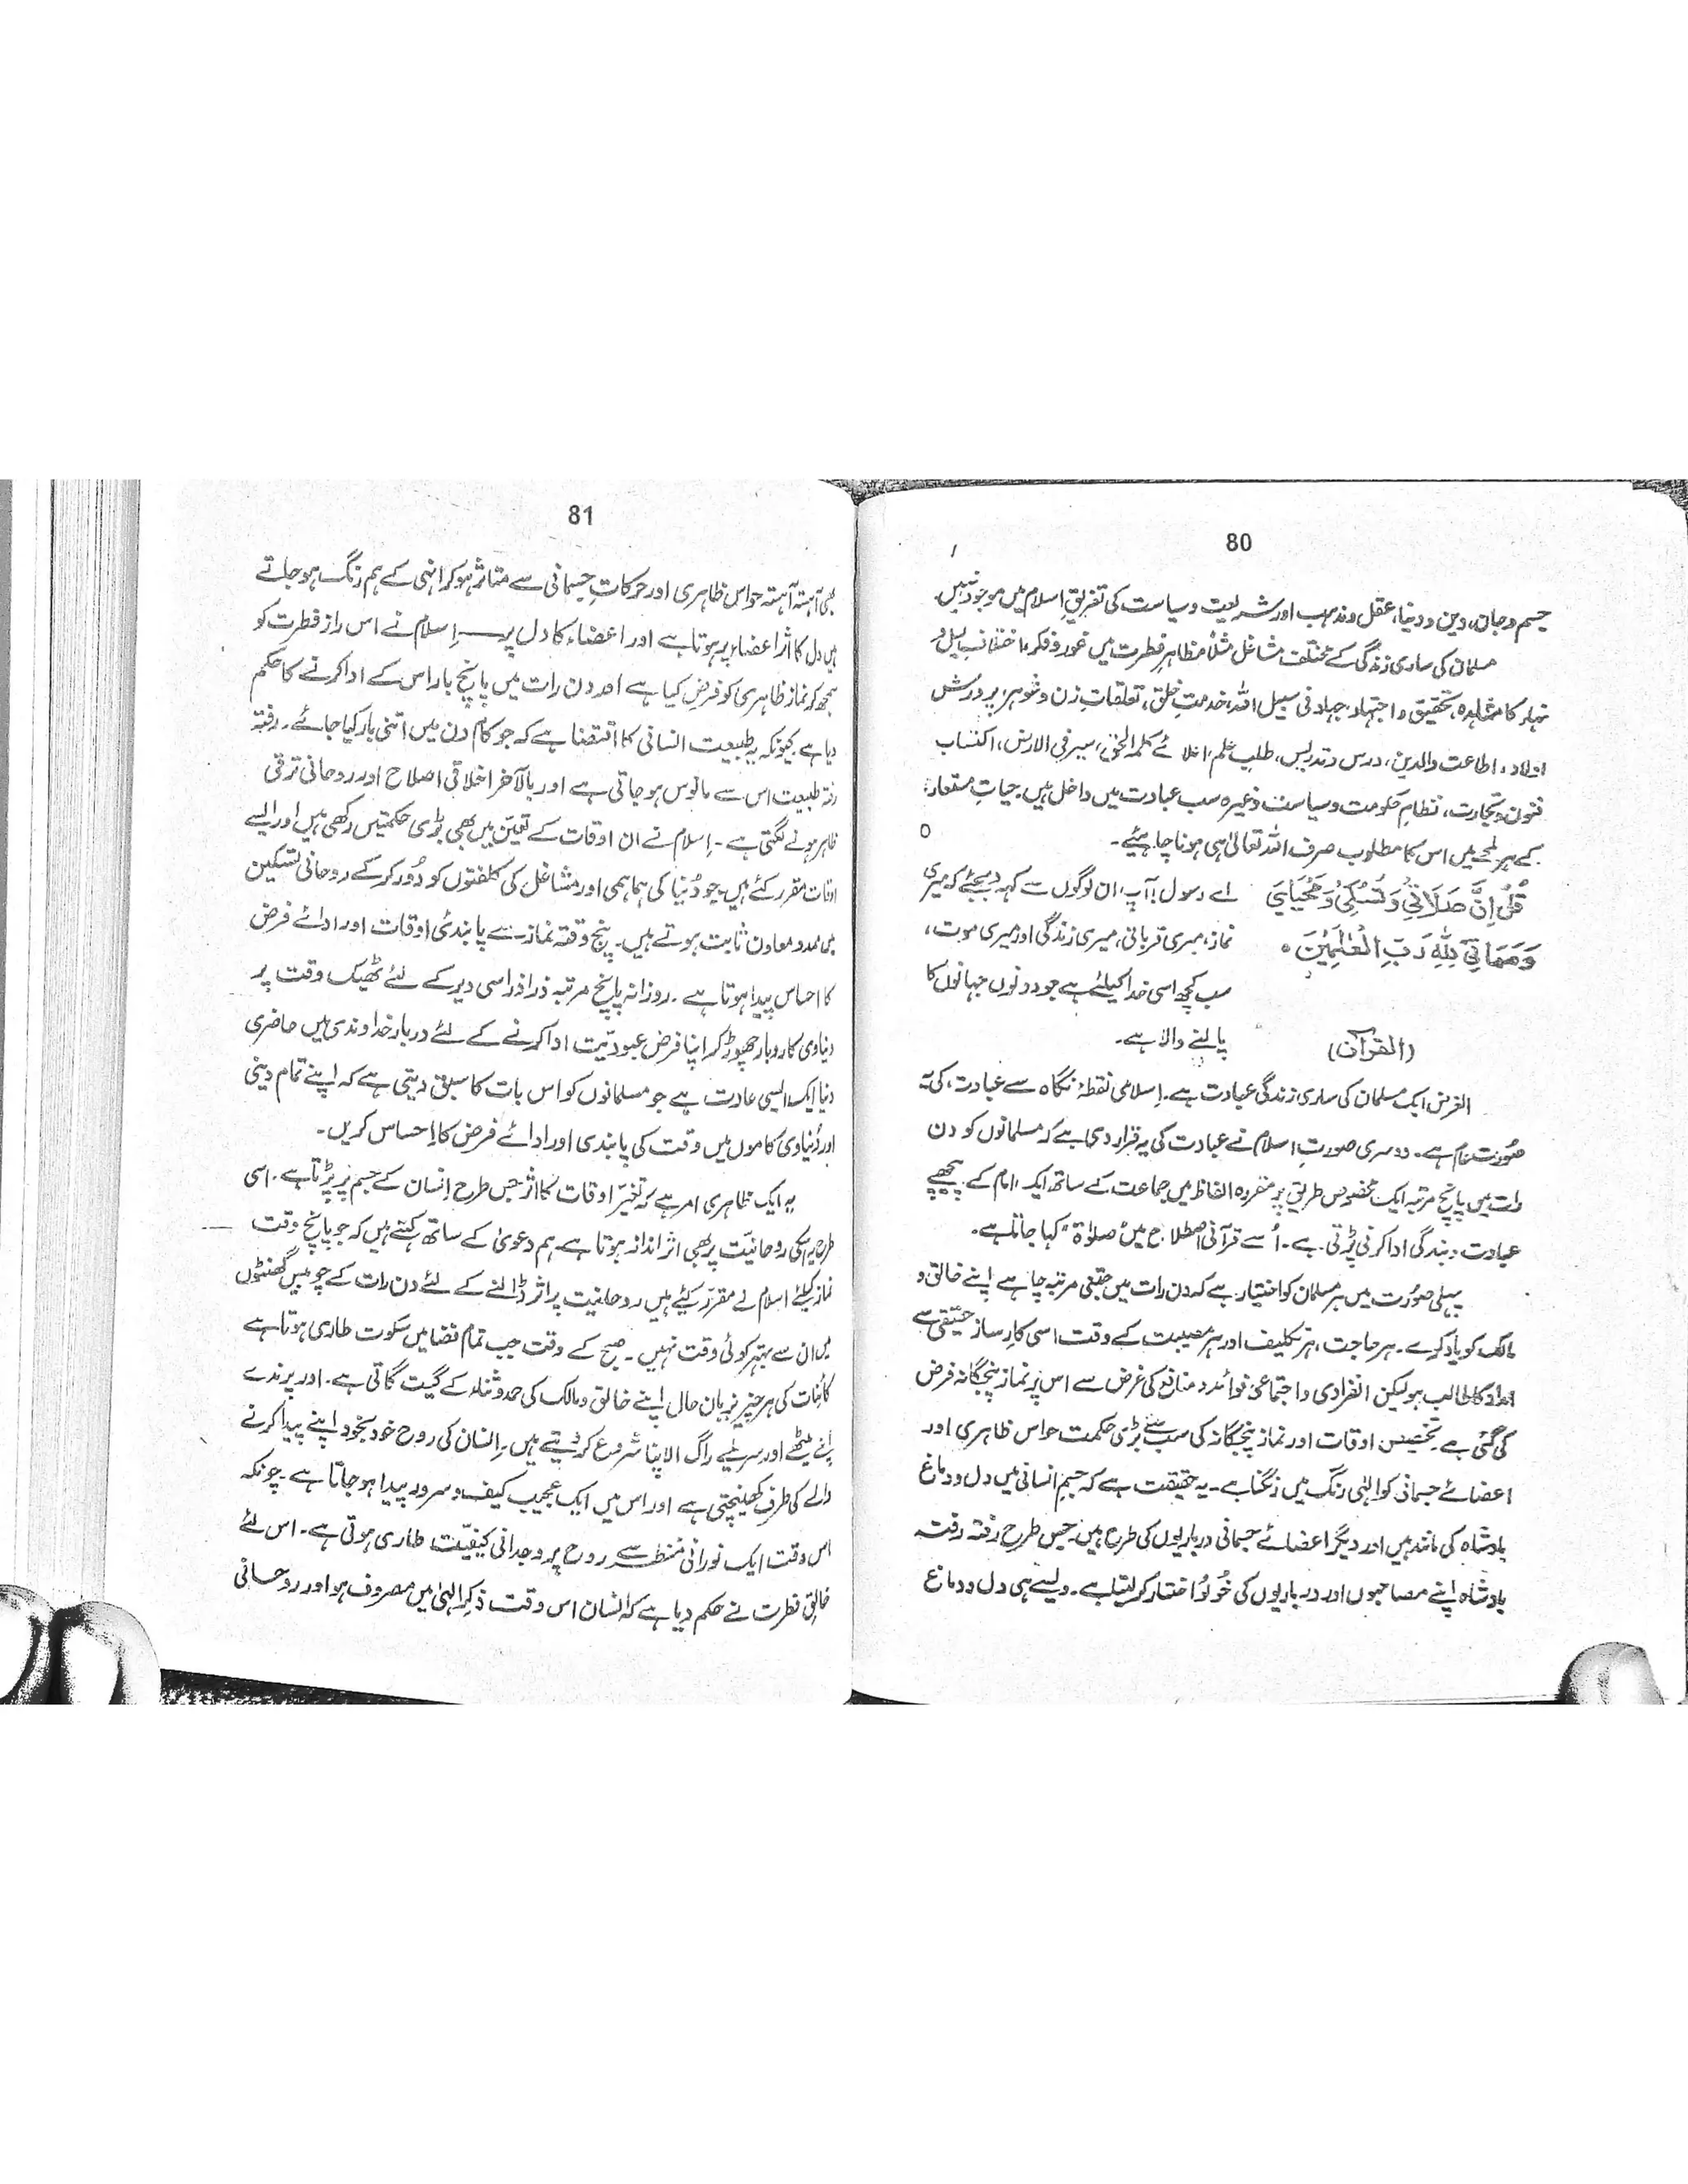 80
جسم و جان، دین و دنیا، عقل و مذہب اور شریعت و سیاست کی تفریق اسلام میں موجود نہیں۔
مسلمان کی ساری زندگی کے مختلف مشاغل مثلاً مظاہر فطرت میں غور و فکر، اختلاف لیل و
نہار کا مشاہدہ، تحقیق و اجتہاد، جہاد فی سبیل اللہ، خدمتِ خلق، تعلقاتِ زن و شوہر، پرورش
اولاد، اطاعت والدین، درس و تدریس، طلبِ علم، اعلائے کلمۃ الحق، سیر فی الارض، اکتساب
فنون و تجارت، نظامِ حکومت و سیاست وغیرہ سب عبادت میں داخل ہیں۔ حیاتِ مستعار
کے ہر لمحے میں اس کا مطلوب صرف اللہ تعالیٰ ہی ہونا چاہئیے۔
قُلْ اِنَّ صَلَاتِیْ وَنُسُکِیْ وَمَحْیَایَ اے رسول! آپ ان لوگوں سے کہہ دیجئے کہ میری
وَمَمَاتِیْ لِلّٰہِ رَبِّ الْعٰلَمِیْنَ۔ نماز، میری قربانی، میری زندگی اور میری موت،
سب کچھ اسی خدا کیلئے ہے جو دونوں جہانوں کا
(القرآن) پالنے والا ہے۔
الغرض ایک مسلمان کی ساری زندگی عبادت ہے۔ اِسلامی نقطۂ نگاہ سے عبادت کی یہ
صُورت عام ہے۔ دوسری صورت اسلام نے عبادت کی یہ قرار دی ہے کہ مسلمانوں کو دن
رات میں پانچ مرتبہ ایک مخصوص طریق پر مقررہ الفاظ میں جماعت کے ساتھ ایک امام کے پیچھے
عبادت و بندگی ادا کرنی پڑتی ہے۔ اُسے قرآنی اصطلاح میں "صلوٰۃ" کہا جاتا ہے۔
پہلی صُورت میں ہر مسلمان کو اختیار ہے کہ دن رات میں جتنی مرتبہ چاہے اپنے خالق و
مالک کو یاد کرے۔ ہر حاجت، ہر تکلیف اور ہر مصیبت کے وقت اسی کارساز حقیقی سے
امداد کا طالب ہو لیکن انفرادی و اجتماعی فوائد و منافع کی غرض سے اس پر نماز پنجگانہ فرض
کی گئی ہے۔ تخصیص اوقات اور نماز پنجگانہ کی سب سے بڑی حکمت حواس ظاہری اور
اعضائے جسمانی کو الٰہی رنگ میں رنگنا ہے۔ یہ حقیقت ہے کہ جسمِ انسانی میں دل و دماغ
بادشاہ کی مانند ہیں اور دیگر اعضائے جسمانی درباریوں کی طرح ہیں۔ جس طرح رفتہ رفتہ
بادشاہ اپنے مصاحبوں اور درباریوں کی خُو بُو اختیار کر لیتا ہے۔ ویسے ہی دل و دماغ
81
بھی آہستہ آہستہ حواس ظاہری اور حرکاتِ جسمانی سے متاثر ہو کر انہی کے ہم رنگ ہو جاتے
ہیں دل کا اثر اعضاء پر ہوتا ہے اور اعضاء کا دل پر۔ اِسلام نے اس راز فطرت کو
سمجھ کر نماز ظاہری کو فرض کیا ہے اور دن رات میں پانچ بار اس کے ادا کرنے کا حکم
دیا ہے۔ کیونکہ یہ طبیعت انسانی کا اقتضا ہے کہ جو کام دن میں اتنی بار کیا جائے۔ رفتہ
رفتہ طبیعت اس سے مانوس ہو جاتی ہے اور بالآخر اخلاقی اصلاح اور روحانی ترقی
ظاہر ہونے لگتی ہے۔ اِسلام نے ان اوقات کے تعیّن میں بھی بڑی حکمتیں رکھی ہیں اور ایسے
اوقات مقرر کئے ہیں۔ جو دُنیا کی ہماہمی اور مشاغل کی کلفتوں کو دُور کر کے روحانی تسکین
میں ممد و معاون ثابت ہوتے ہیں۔ پنج وقتہ نماز سے پابندی اوقات اور ادائے فرض
کا احساس پیدا ہوتا ہے۔ روزانہ پانچ مرتبہ ذرا ذرا سی دیر کے لئے ٹھیک وقت پر
دنیاوی کاروبار چھوڑ کر اپنا فرض عبودیّت ادا کرنے کے لئے دربار خداوندی میں حاضری
دینا ایک ایسی عادت ہے جو مسلمانوں کو اس بات کا سبق دیتی ہے کہ اپنے تمام دینی
اور دُنیاوی کاموں میں وقت کی پابندی اور ادائے فرض کا اِحساس کریں۔
یہ ایک ظاہری امر ہے کہ تغیّر اوقات کا اثر جس طرح اِنسان کے جسم پر پڑتا ہے۔ اسی
طرح یہ اسکی روحانیّت پر بھی اثر انداز ہوتا ہے۔ ہم دعویٰ کے ساتھ کہتے ہیں کہ جو پانچ وقت
نماز کیلئے اسلام نے مقرر کئے ہیں۔ روحانیت پر اثر ڈالنے کے لئے دن رات کے چوبیس گھنٹوں
میں ان سے بہتر کوئی وقت نہیں۔ صبح کے وقت جب تمام فضا میں سکوت طاری ہوتا ہے
کائنات کی ہر چیز بزبان حال اپنے خالق و مالک کی حمد و ثنا کے گیت گاتی ہے۔ اور پرندے
اپنے میٹھے اور سریلے راگ الاپنا شروع کر دیتے ہیں۔ اِنسان کی روح خود بخود اپنے پیدا کرنے
والے کی طرف کھینچتی ہے اور اس میں ایک عجیب کیف و سرور پیدا ہو جاتا ہے۔ چونکہ
اس وقت ایک نورانی منظر سے روح پر وجدانی کیفیّت طاری ہوتی ہے۔ اس لئے
خالقِ فطرت نے حکم دیا ہے کہ انسان اس وقت ذکرِ الٰہی میں مصروف ہو اور روحانی